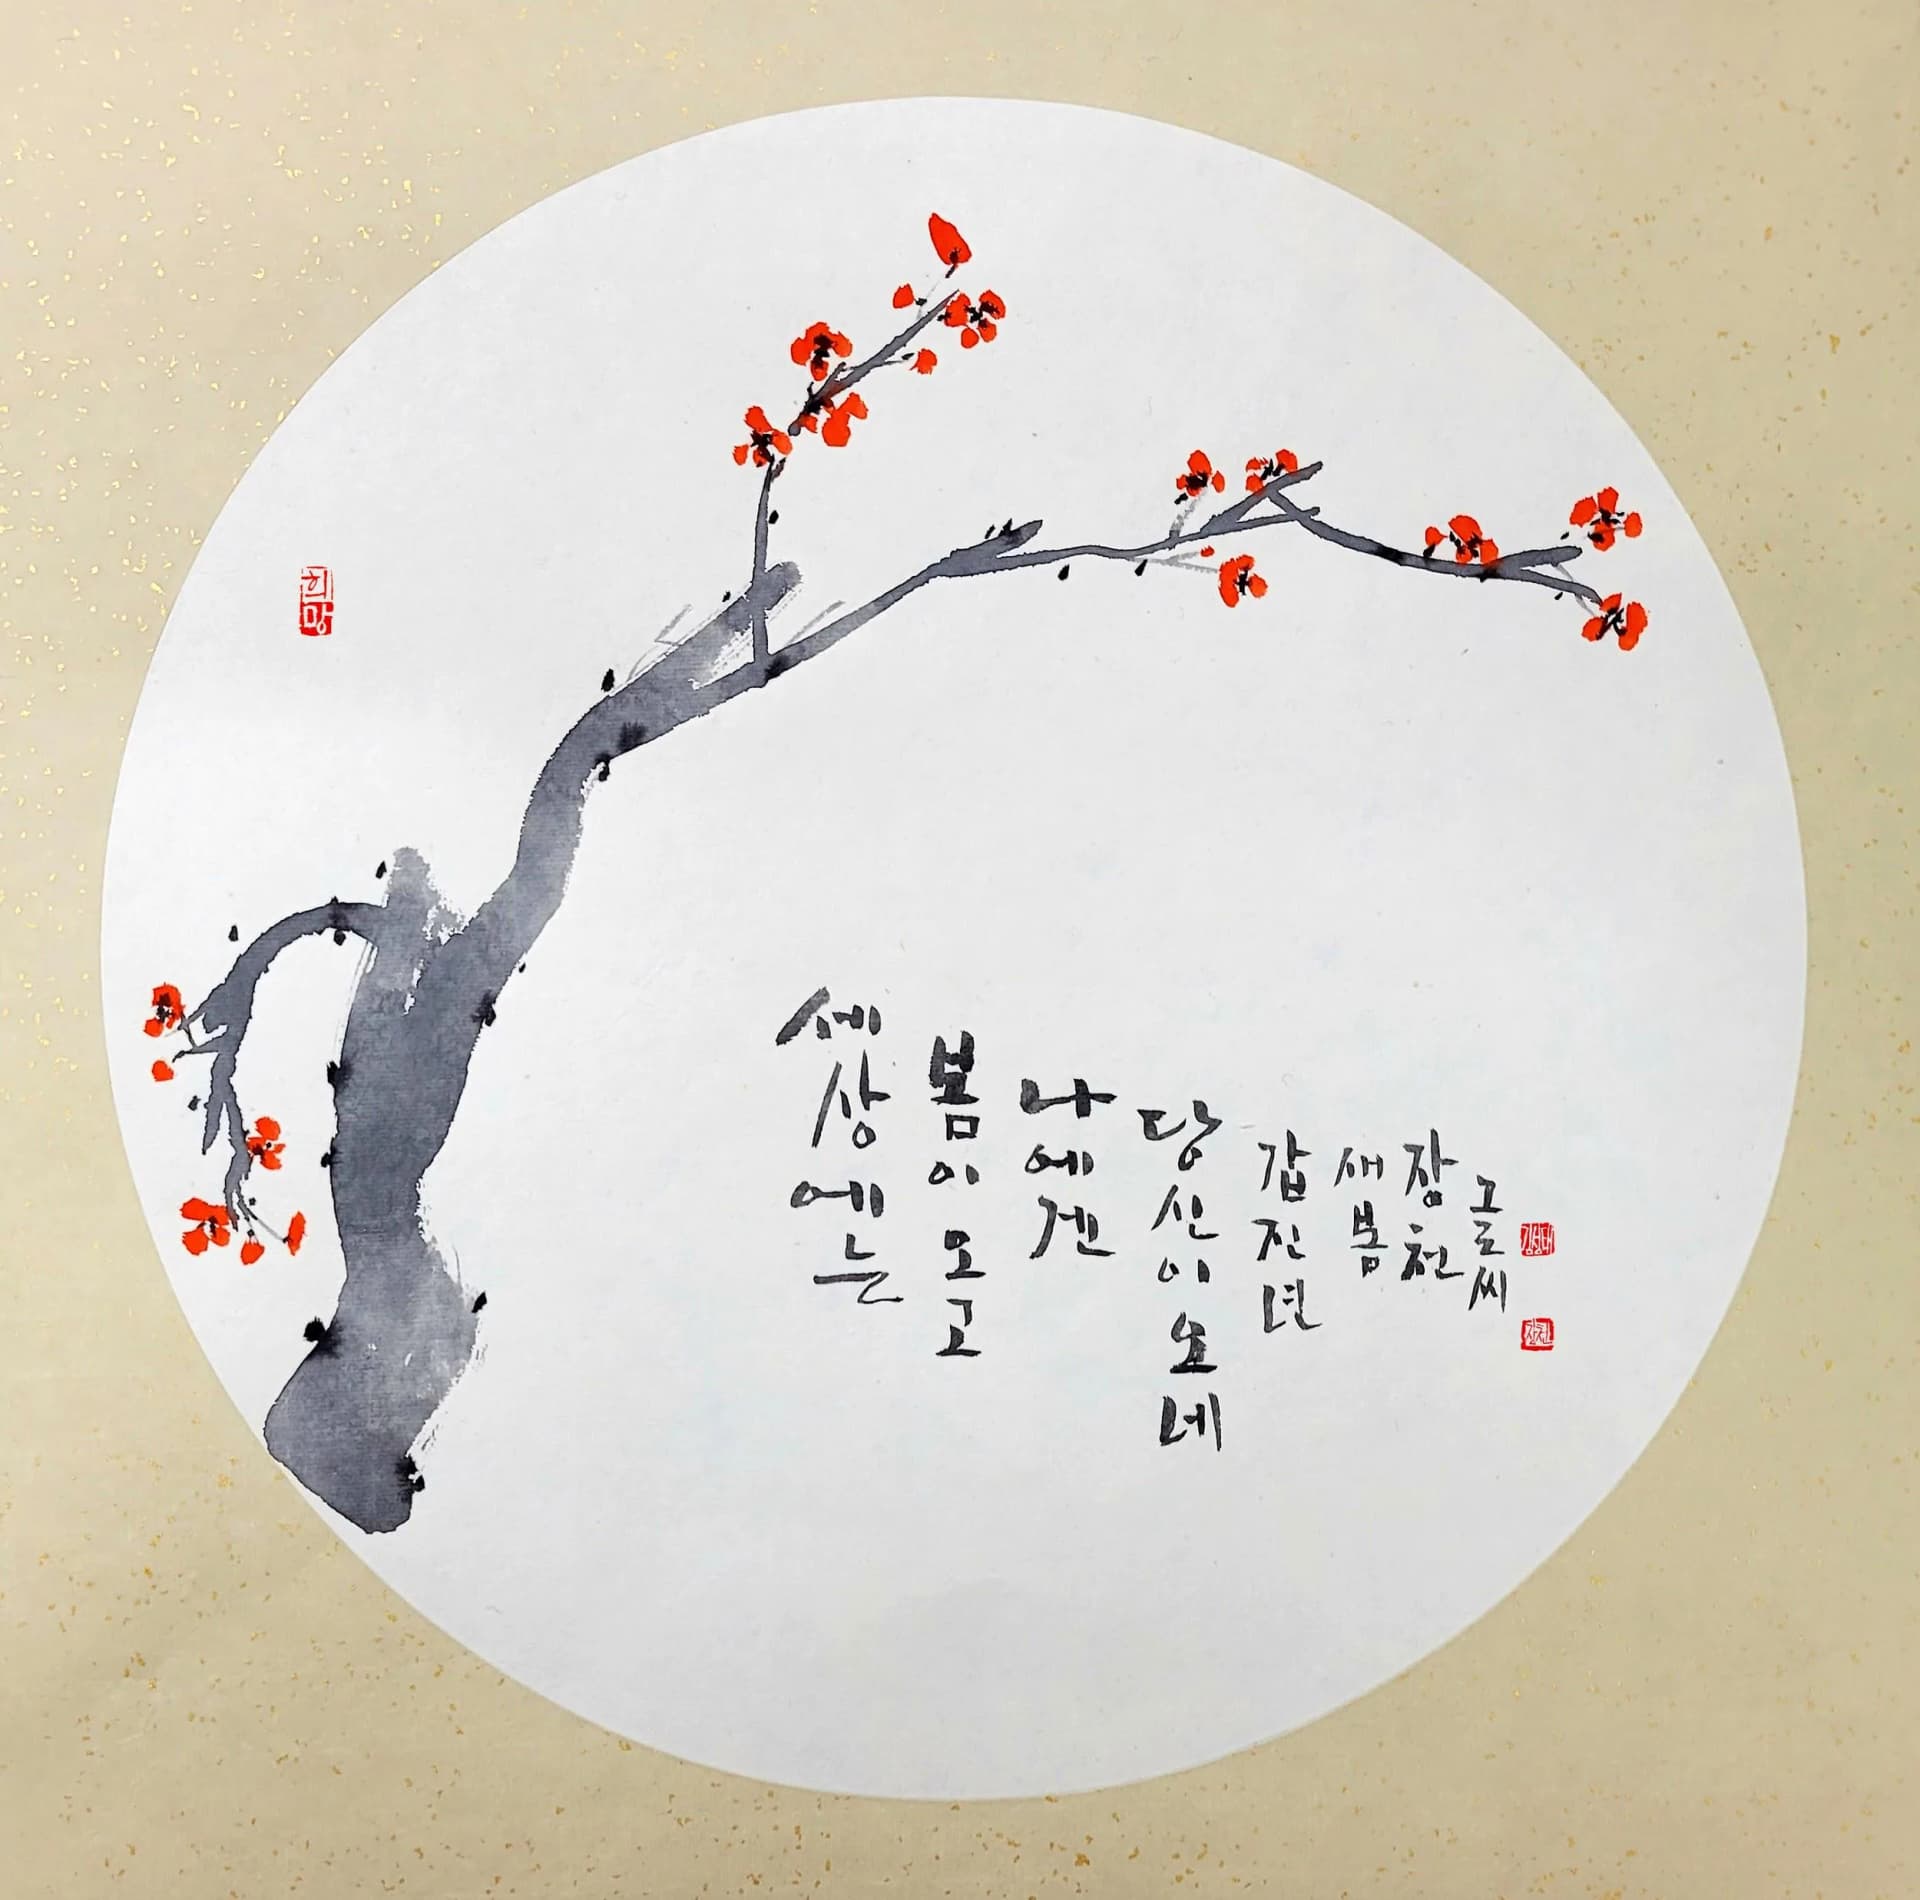 희망
세상에는
봄이오고
나에겐
당신이오네
갑진년
새봄
장천
그르씨
장천